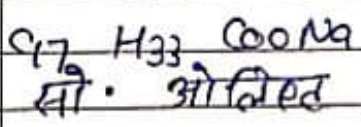 C17 H33 COONa
सो. ओलिएट